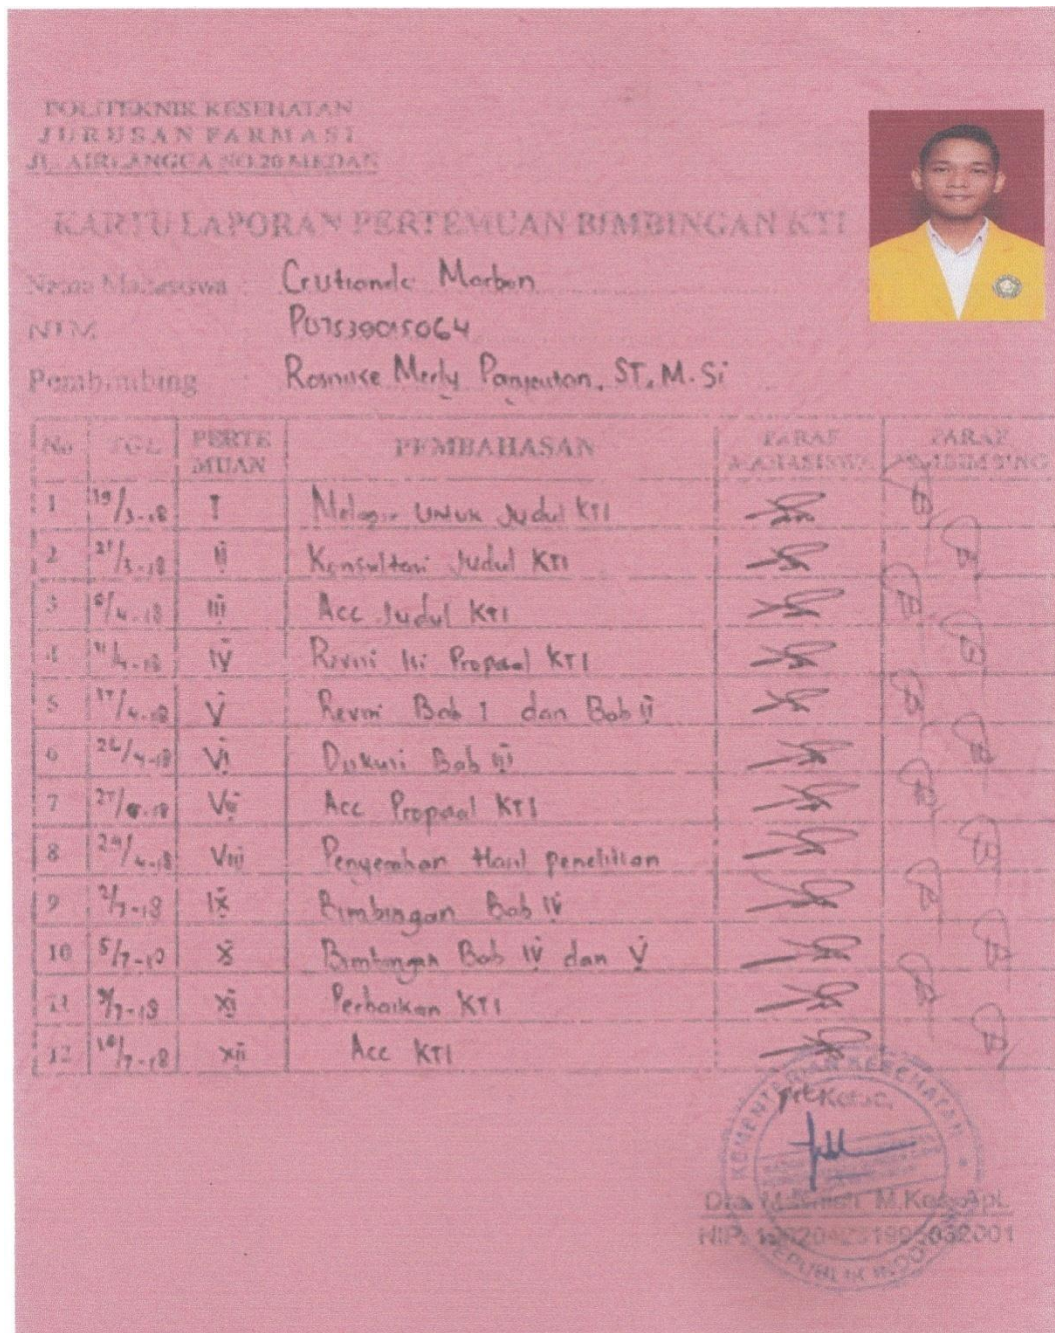 POLITEKNIK KESEHATAN
JURUSAN FARMASI
JL. AIRLANGGA NO.20 MEDAN
KARTU LAPORAN PERTEMUAN BIMBINGAN KTI
Nama Mahasiswa :
NIM P07539015064
Pembimbing : Merly ST, M.Si
No TGL PERTE MUAN PEMBAHASAN PARAF MAHASISWA PARAF PEMBIMBING
1 19/3-18 I Untuk Judul KTI
2 21/3-18 II Konsultasi Judul KTI
3 6/4-18 III Acc Judul KTI
4 11/4-18 IV Revisi Isi Proposal KTI
5 17/4-18 V Revisi Bab I dan Bab II
6 /4-18 VI Diskusi Bab III
7 VII Acc Proposal KTI
8 VIII Penyerahan Hasil penelitian
9 2/7-18 IX Bimbingan Bab IV
10 5/7-18 X Bimbingan Bab IV dan V
11 9/7-18 XI Perbaikan KTI
12 /7-18 XII Acc KTI
KEMENTERIAN KESEHATAN
Ketua,
Dra. Masniah, M.Kes, Apt.
NIP.
REPUBLIK INDONESIA